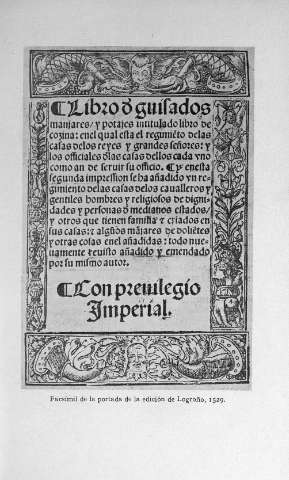 ¶Libro đ guisados
manjares/ y potajes intitulado libro de
cozina: enel qual esta el regimiẽto delas
casas delos reyes y grandes señores: y
los officiales đlas casas dellos cada vno
como an de seruir su officio. ¶Y enesta
segunda impression se ha añadido vn re-
gimiento delas casas delos caualleros y
gentiles hombres y religiosos de digni-
dades y personas đ medianos estados/
y otros que tienen familia z criados en
sus casas: z algũos mãjares de doliẽtes
y otras cosas enel añadidas: todo nue-
uamente reuisto añadido y emendado
por su mismo autor.
¶Con preuilegio
Imperial.
Facsímil de la portada de la edición de Logroño, 1529.